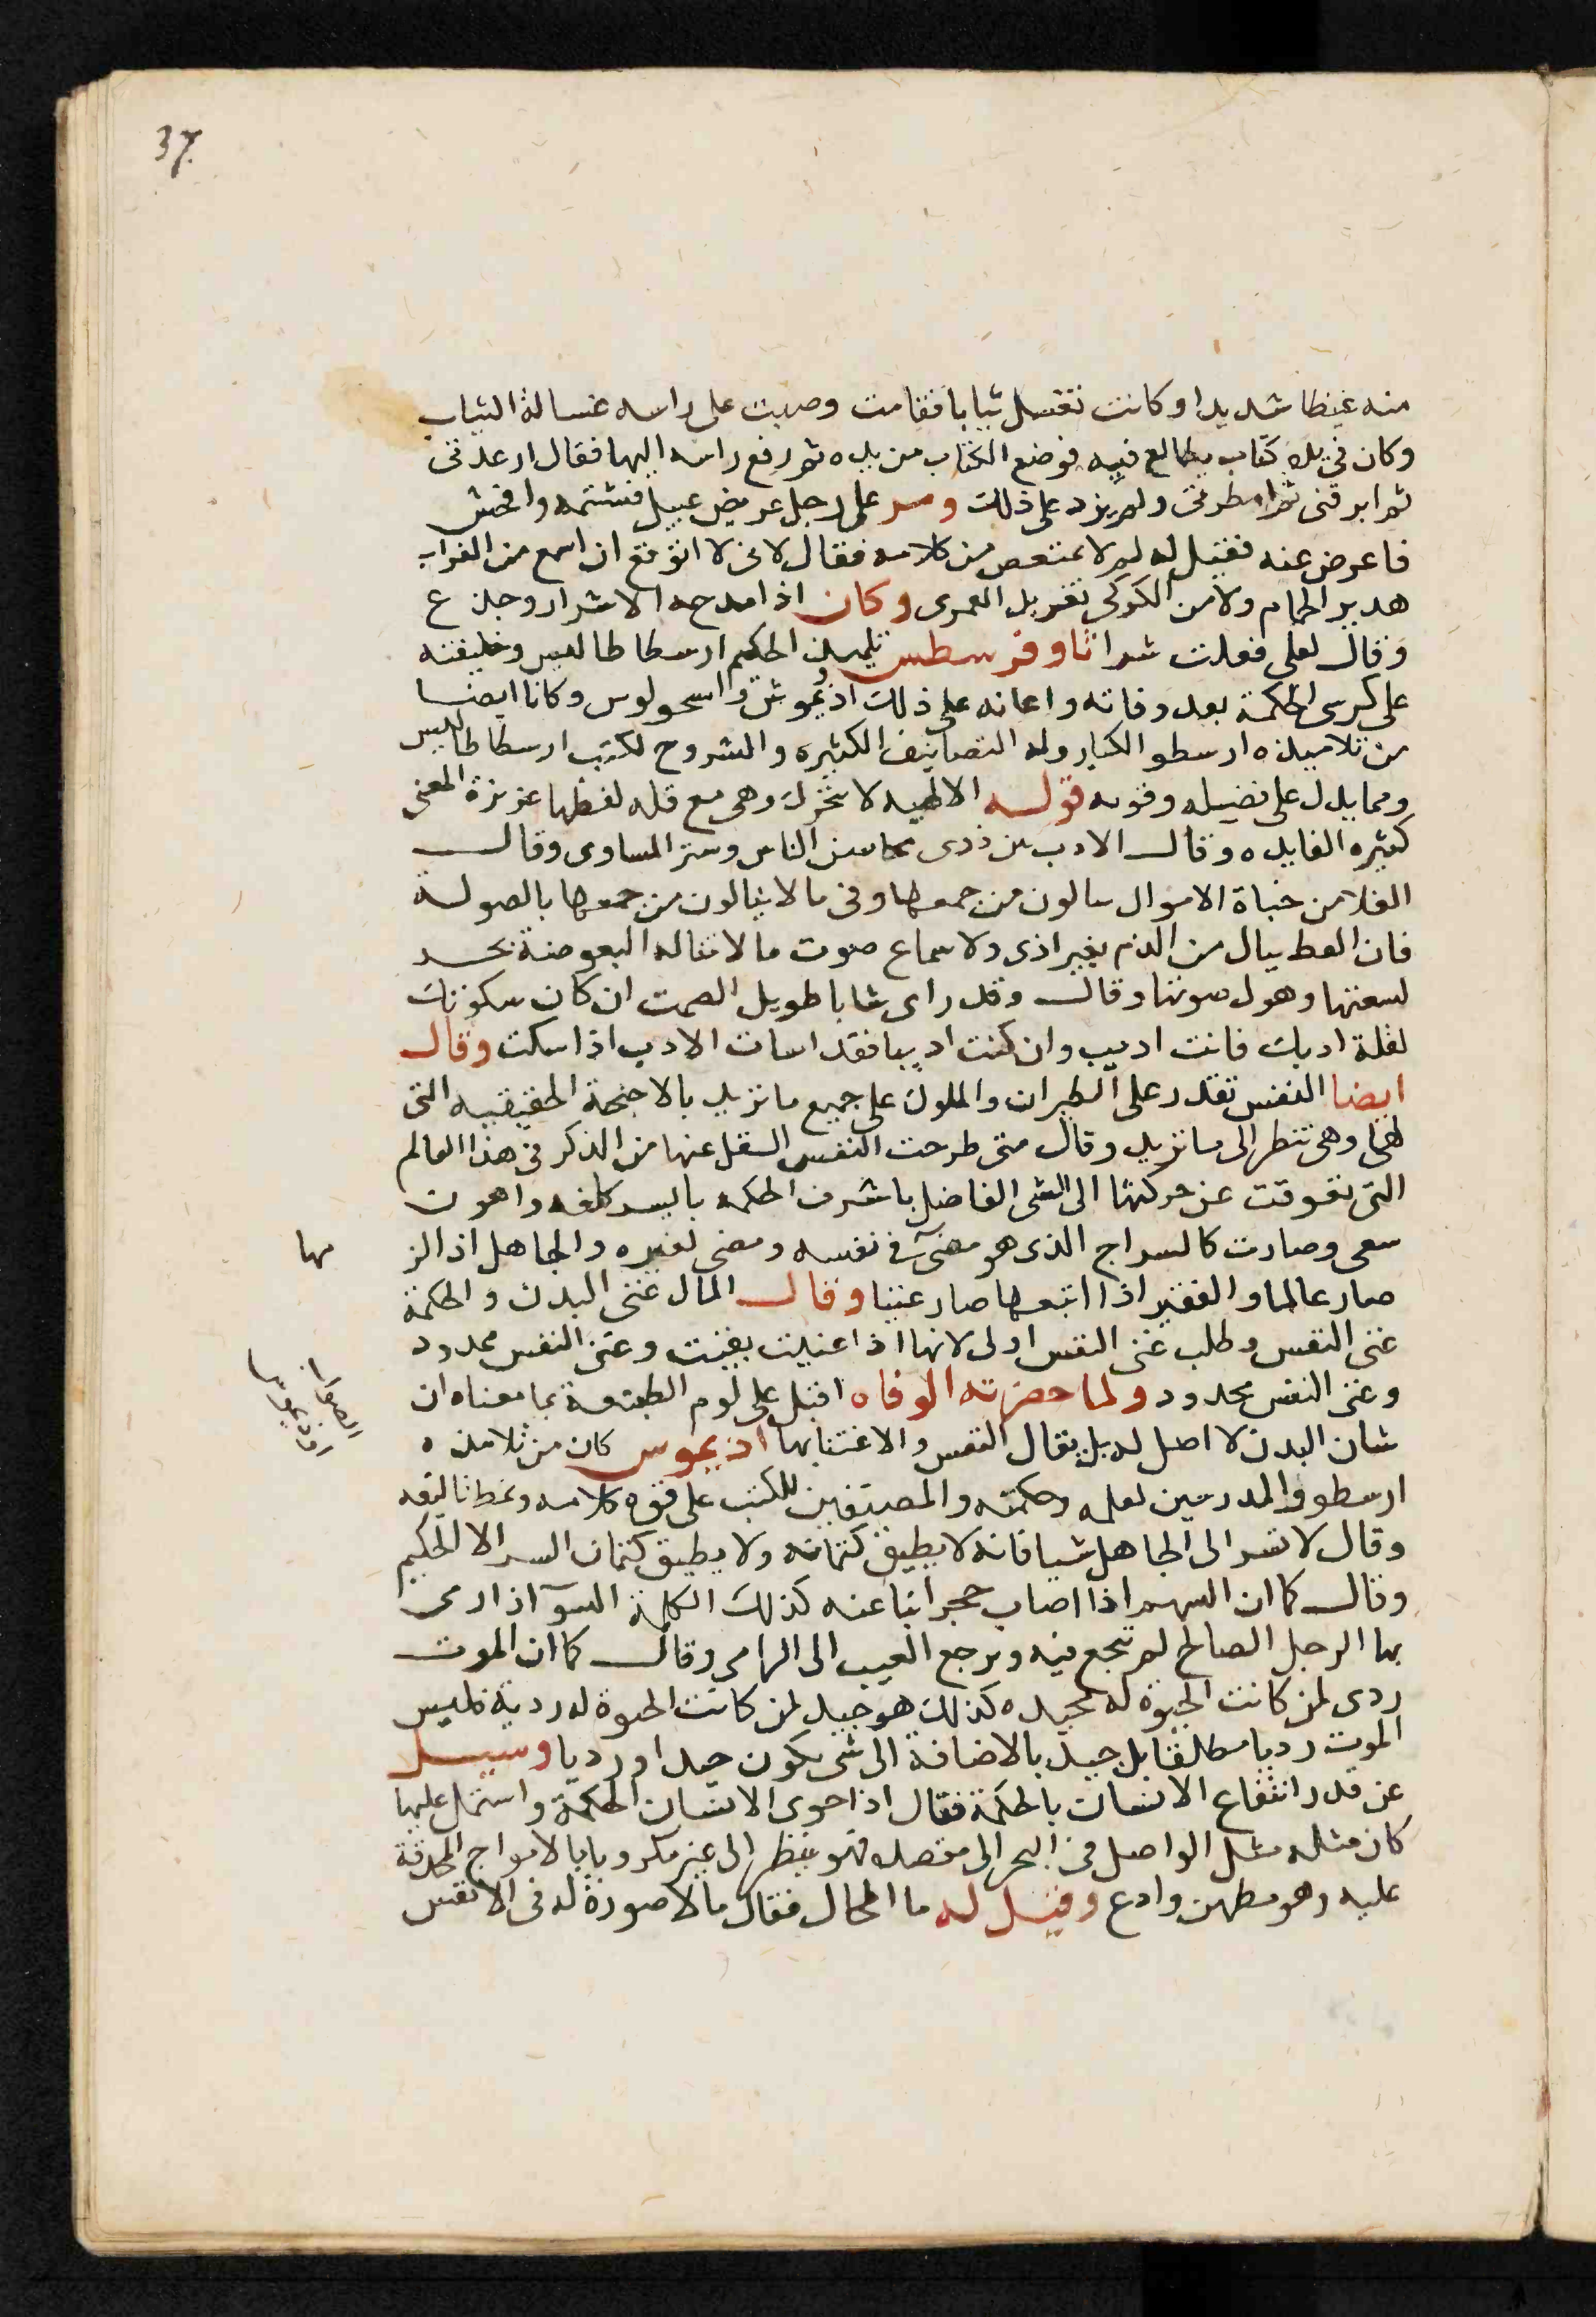 37
منه غيظا شديدا وكانت تغسل ثيابا فقامت وصبت على راسه غسالة الثياب
وكان في يده كتاب يطالع فيه فوضع الكتاب من يده ثم رفع راسه اليها فقال ارعدتى
ثم ابرقتى ثم امطرتى ولم يزد على ذلك ومر على رجل عريض عبل فشتمه وافحش
فاعرض عنه فقيل له لم لا تمتعص من كلامه فقال لانى لا اتوقع ان اسمع من الغراب
هدير الحمام ولا من الكركى تغريد القمرى وكان اذا مدحه الاشرار وجد ع
وقال لعلى فعلت شرا ثاوفرسطس تلميذ الحكيم ارسطاطاليس وخليفته
على كرسى الحكمة بعد وفاته واعانه على ذلك اذيموش واسحولوس وكانا ايضا
من تلاميذه ارسطو الكبار وله التصانيف الكثيره والشروح لكتب ارسطاطاليس
ومما يدل على فضيله وقوته قوله الالهيه لا تتحرك وهى مع قله لفظها عزيزة المعنى
كثيره الفايده وقال الادب من ذوى محاسن الناس وستر المساوى وقال
العلا من حباة الاموال ينالون من جمعها وفى ما لا ينالون من جمعها بالصولة
فان القط ينال من الدم بغير اذى ولا سماع صوت ما لا تناله البعوضة بحد
لسعتها وهول صوتها وقال وقد راى شابا طويل الصمت ان كان سكوتك
لقلة ادبك فانت اديب وان كنت اديبا فقد اسات الادب اذا سكت وقال
ايضا النفس تقدر على الطيران والحلول على جميع ما تريد بالاجنحة الحقيقيه التى
لها وهى تنظر الى ما تريد وقال متى طرحت النفس الثقل عنها من الذكر فى هذا العالم
التى تعوقت عن حركتها الى الشى الفاضل باشرف الحكمه بايسر كلفه واهون
سعى وصارت كالسراج الذى هو مضئ فى نفسه ومضى لغيره والجاهل اذا الز
مها
صار عالما والفقير اذا اتبعها صار غنيا وقال المال غنى البدن والحكمة
غنى النفس وطلب غنى النفس اولى لانها اذا غنيت بقيت وغنى النفس محدود
وغنى النفس محدود ولما حضرته الوفاه اقبل على لوم الطبيعة بما معناه ان
شان البدن لا اصل له بل يقال النفس والاعتنا بها اذيموس كان من تلامذه
ارسطو والمدرسين لعلمه وحكمته والمصنفين للكتب على قوة كلامه ونمط تاليفه
وقال لا تسر الى الجاهل شيا فانه لا يطيق كتمانه ولا يطيق كتمان السر الا الحكيم
وقال كما ان السهم اذا اصاب حجرا نبا عنه كذلك الكلمة السوآ اذا رمى
بها الرجل الصالح لم تنجع فيه ويرجع العيب الى الرامى وقال كما ان الموت
ردى لمن كانت الحيوة له جيده كذلك هو جيد لمن كانت الحيوة له ردية فليس
الموت رديا مطلقا بل جيد بالاضافة الى شى يكون جيدا او رديا وسيل
عن قدر انتفاع الانسان بالحكمة فقال اذا حوى الانسان الحكمة واشتمل عليها
كان مثله مثل الواصل من البحر الى مقصده فهو ينظر الى غيره مكروبا بالامواج المحدقة
عليه وهو مطمن وادع وقيل له ما المحال فقال ما لا صورة له فى الانفس